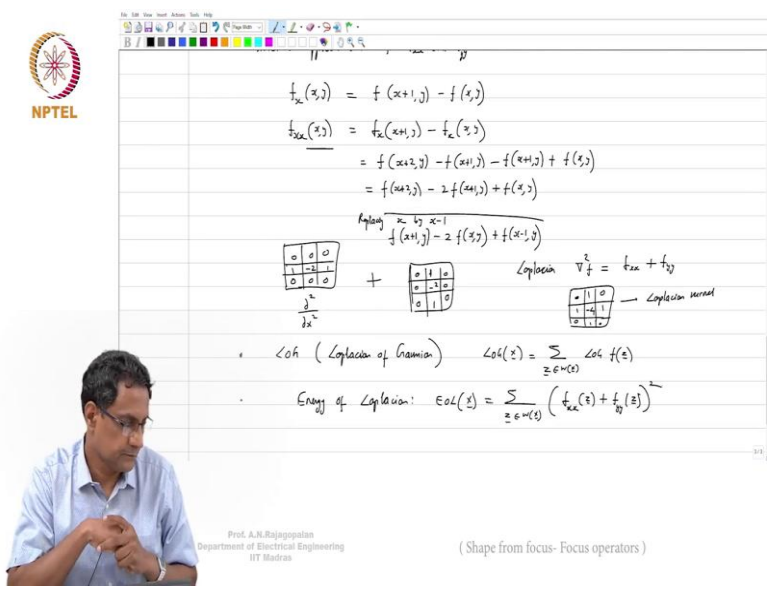 File Edit View Insert Actions Tools Help
Page Width
B I
NPTEL
f_x(x,y) = f(x+1,y) - f(x,y)
f_xx(x,y) = f_x(x+1,y) - f_x(x,y)
= f(x+2,y) - f(x+1,y) - f(x+1,y) + f(x,y)
= f(x+2,y) - 2f(x+1,y) + f(x,y)
Replacing x by x-1
f(x+1,y) - 2f(x,y) + f(x-1,y)
0 0 0
1 -2 1
0 0 0
∂²
∂x²
+
0 1 0
0 -2 0
0 1 0
Laplacian ∇²f = f_xx + f_yy
0 1 0
1 -4 1
0 1 0
Laplacian kernel
. LoG (Laplacian of Gaussian) LoG(x) = Σ_{z∈W(x)} LoG f(z)
. Energy of Laplacian: EOL(x) = Σ_{z∈W(x)} (f_xx(z) + f_yy(z))²
Prof. A.N.Rajagopalan
Department of Electrical Engineering
IIT Madras
( Shape from focus- Focus operators )